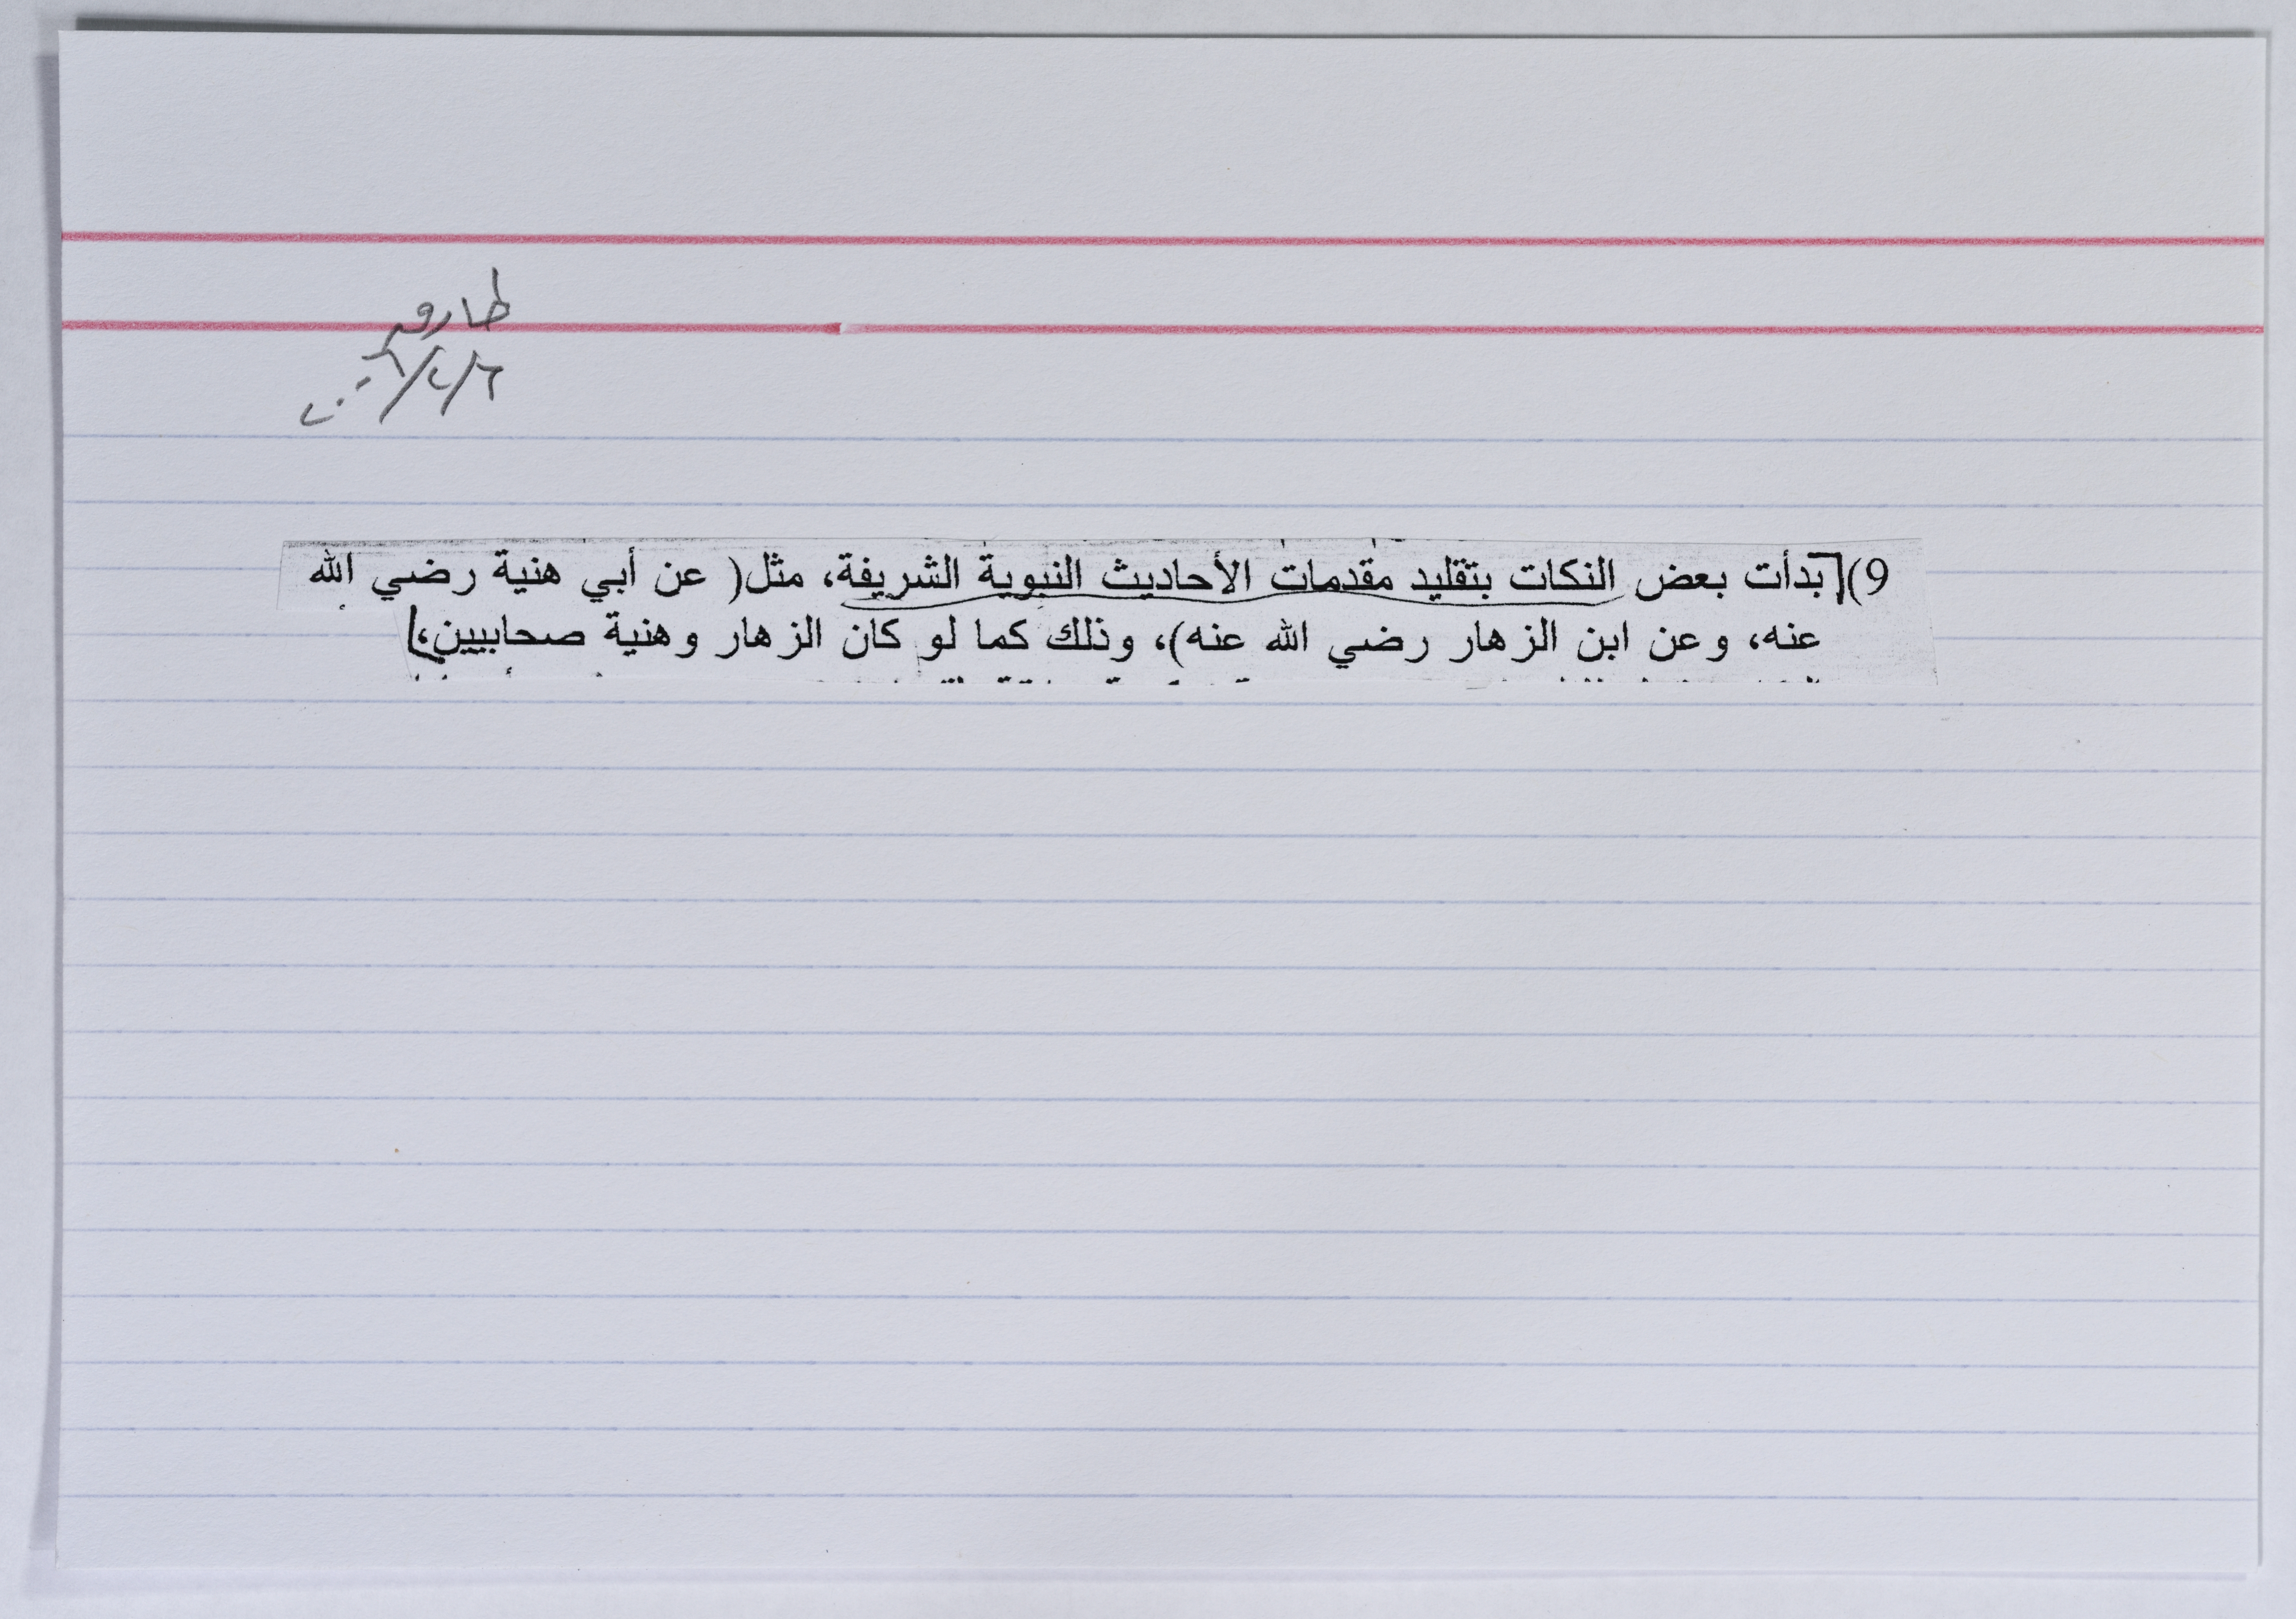 طارق
٦/٤/٢٠٠٦
9) [بدأت بعض النكات بتقليد مقدمات الأحاديث النبوية الشريفة، مثل( عن أبي هنية رضي الله
عنه، وعن ابن الزهار رضي الله عنه)، وذلك كما لو كان الزهار وهنية صحابيين،]